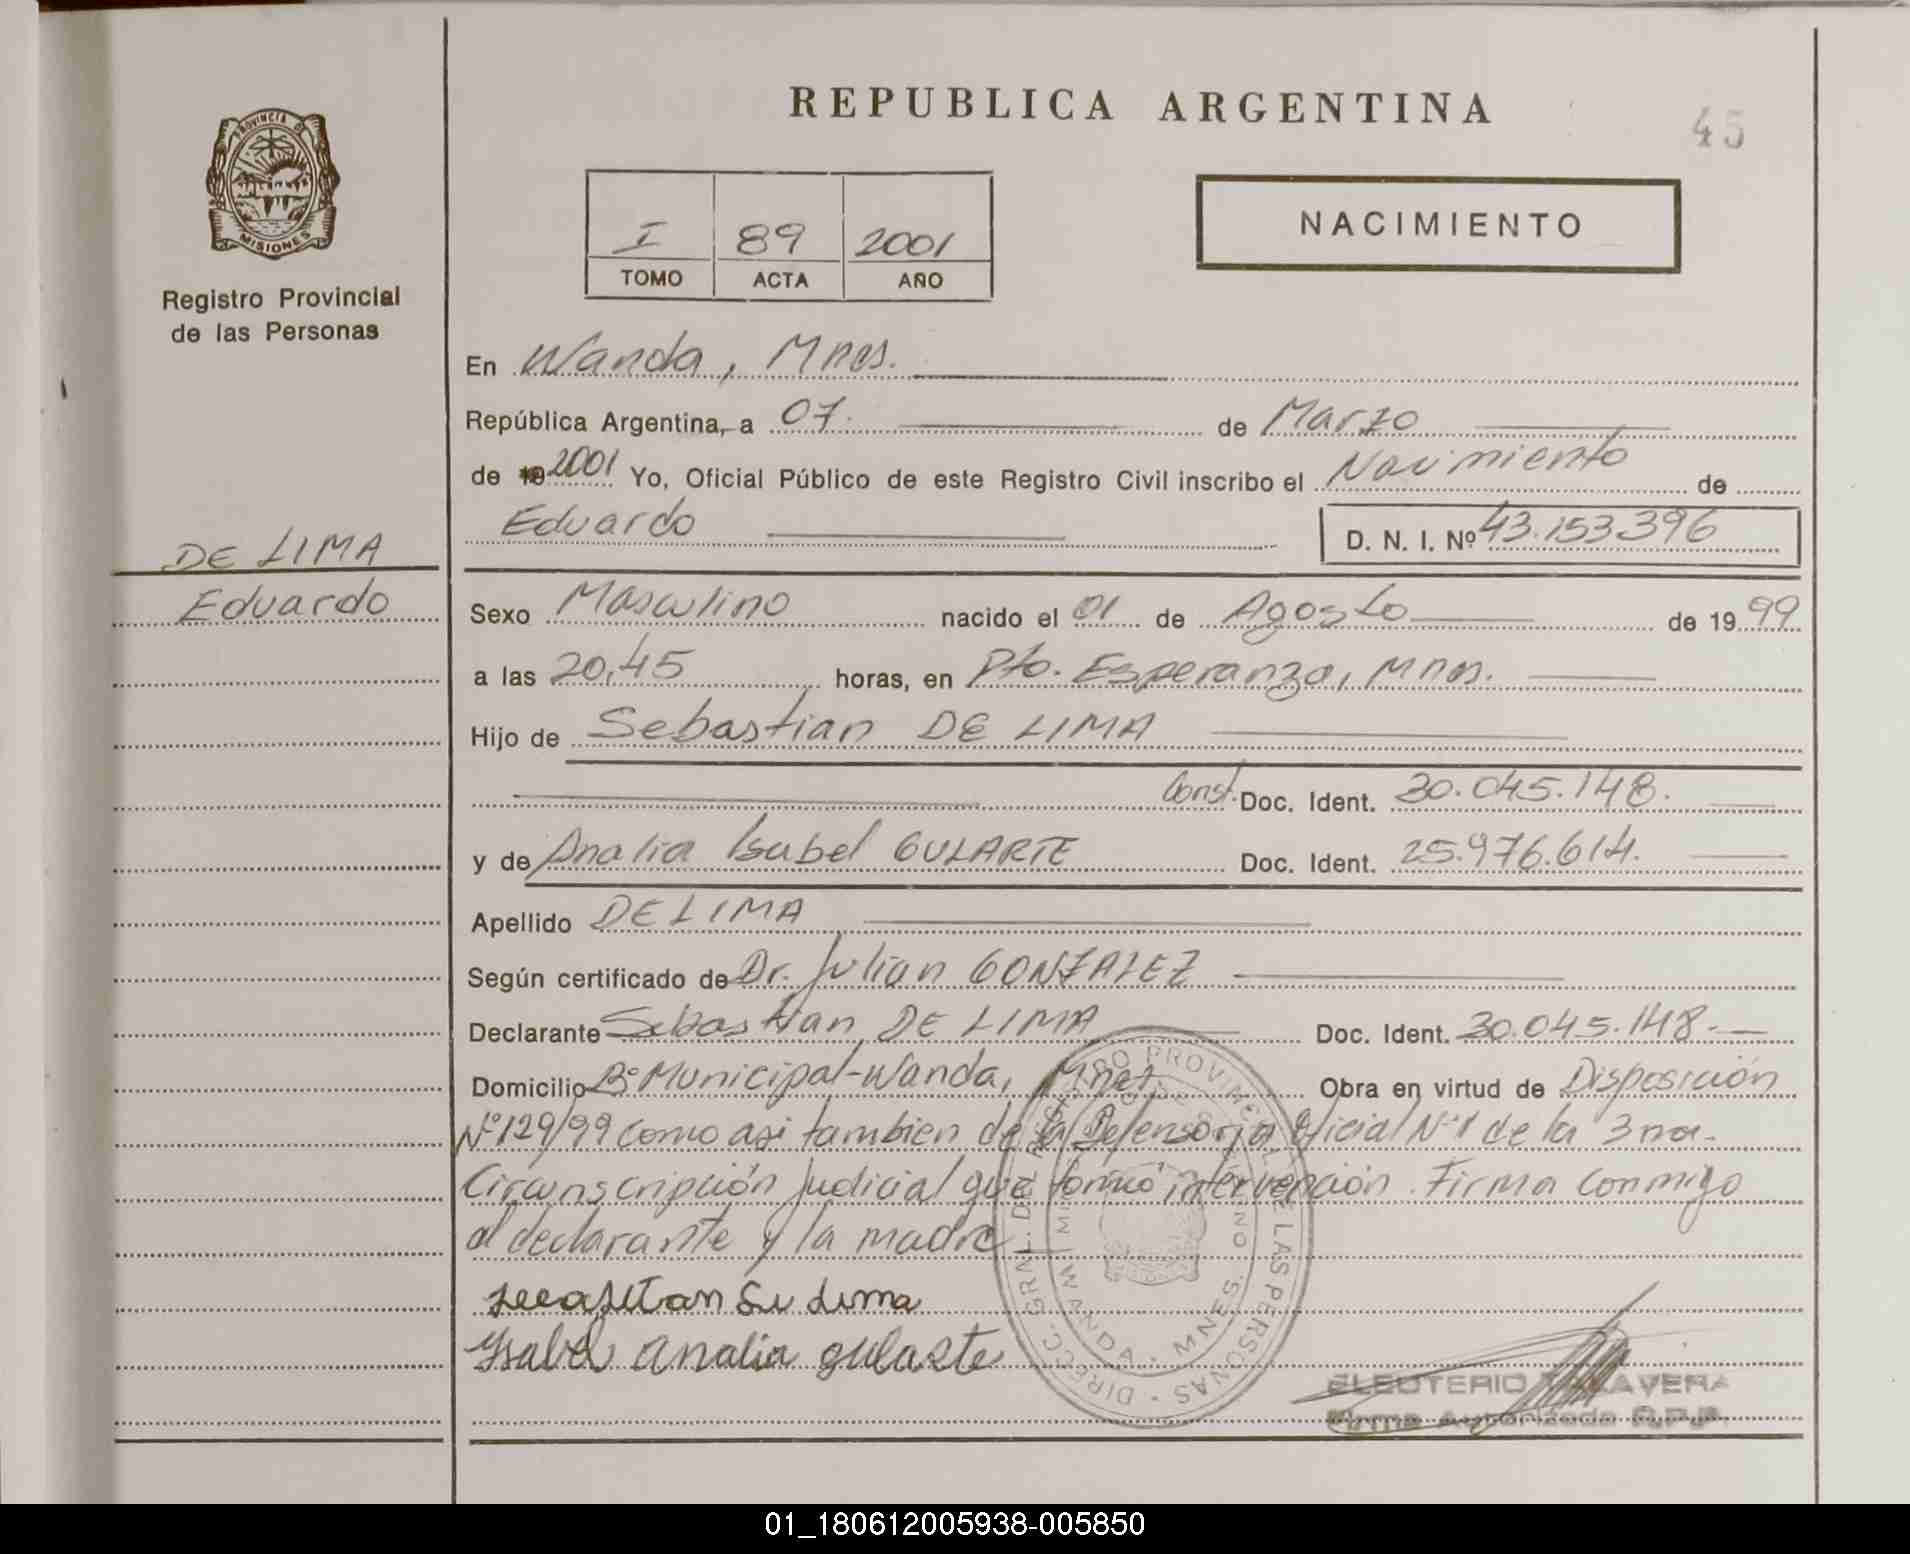 REPUBLICA ARGENTINA
45
PROVINCIA DE
MISIONES
Registro Provincial
de las Personas
I 89 2001
TOMO ACTA AÑO
NACIMIENTO
En Wanda, Mnes.
República Argentina, a 07. de Marzo
de 19 2001 Yo, Oficial Público de este Registro Civil inscribo el Nacimiento de
Eduardo D. N. I. Nº 43.153.396
DE LIMA
Eduardo
Sexo Masculino nacido el 01 de Agosto de 1999
a las 20,45 horas, en Pto. Esperanza, Mnes.
Hijo de Sebastian DE LIMA
Const. Doc. Ident. 30.045.148.
y de Analia Isabel GULARTE Doc. Ident. 25.976.614.
Apellido DE LIMA
Según certificado de Dr. Julian GONZALEZ
Declarante Sebastian DE LIMA Doc. Ident. 30.045.148.
Domicilio Bº Municipal-Wanda, Mnes. Obra en virtud de Disposición
Nº 129/99 como asi tambien de la Defensoria Oficial Nº 1 de la 3ra.
Circunscripción Judicial que tomó intervención. Firma conmigo
el declarante y la madre
Ysabel analia gularte
DIRECC. GRAL. DEL REGISTRO PROVINCIAL DE LAS PERSONAS
WANDA - MNES.
ELEUTERIO TALAVERA
Firma Autorizada R.P.P.
01_180612005938-005850